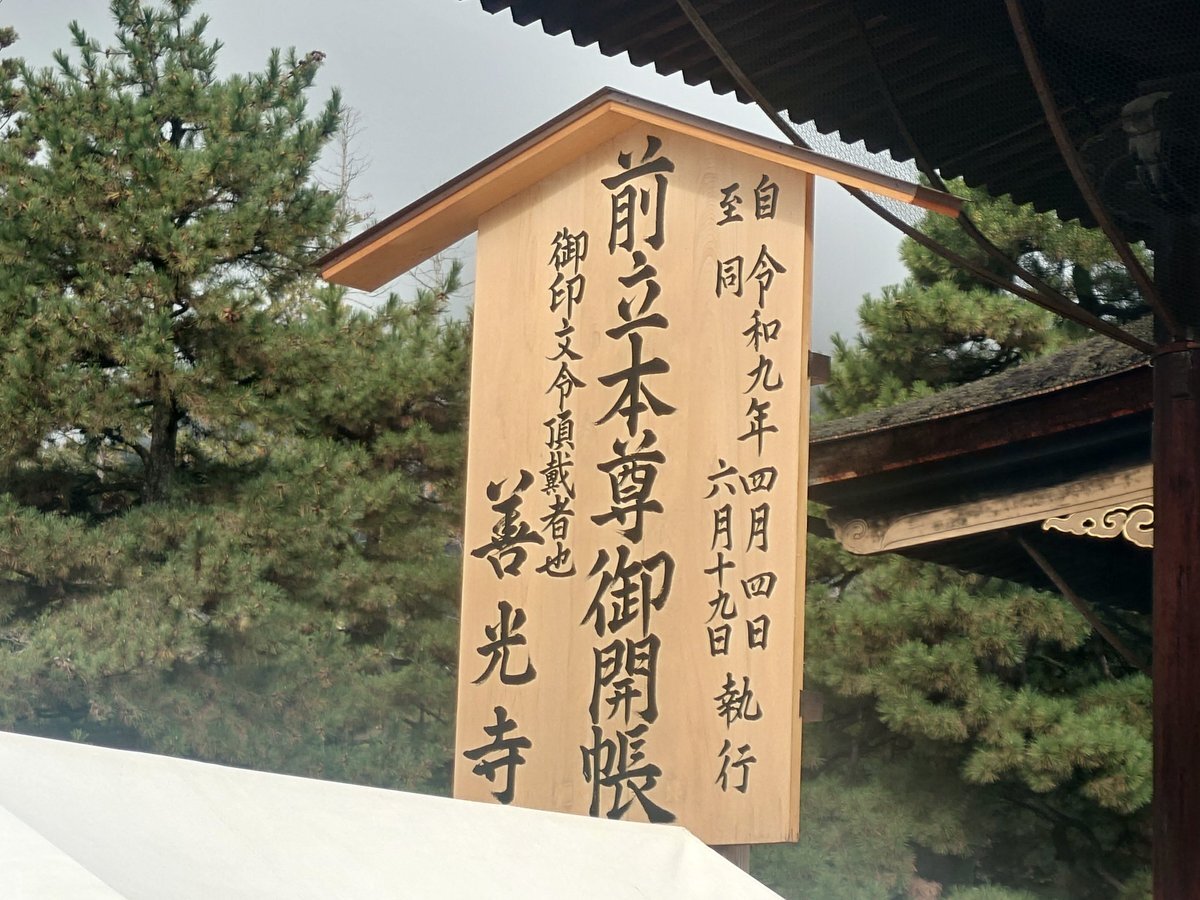 自 令和九年 四月 四日
至 同 六月十九日 執行
前立本尊御開帳
御印文令頂戴者也
善光寺